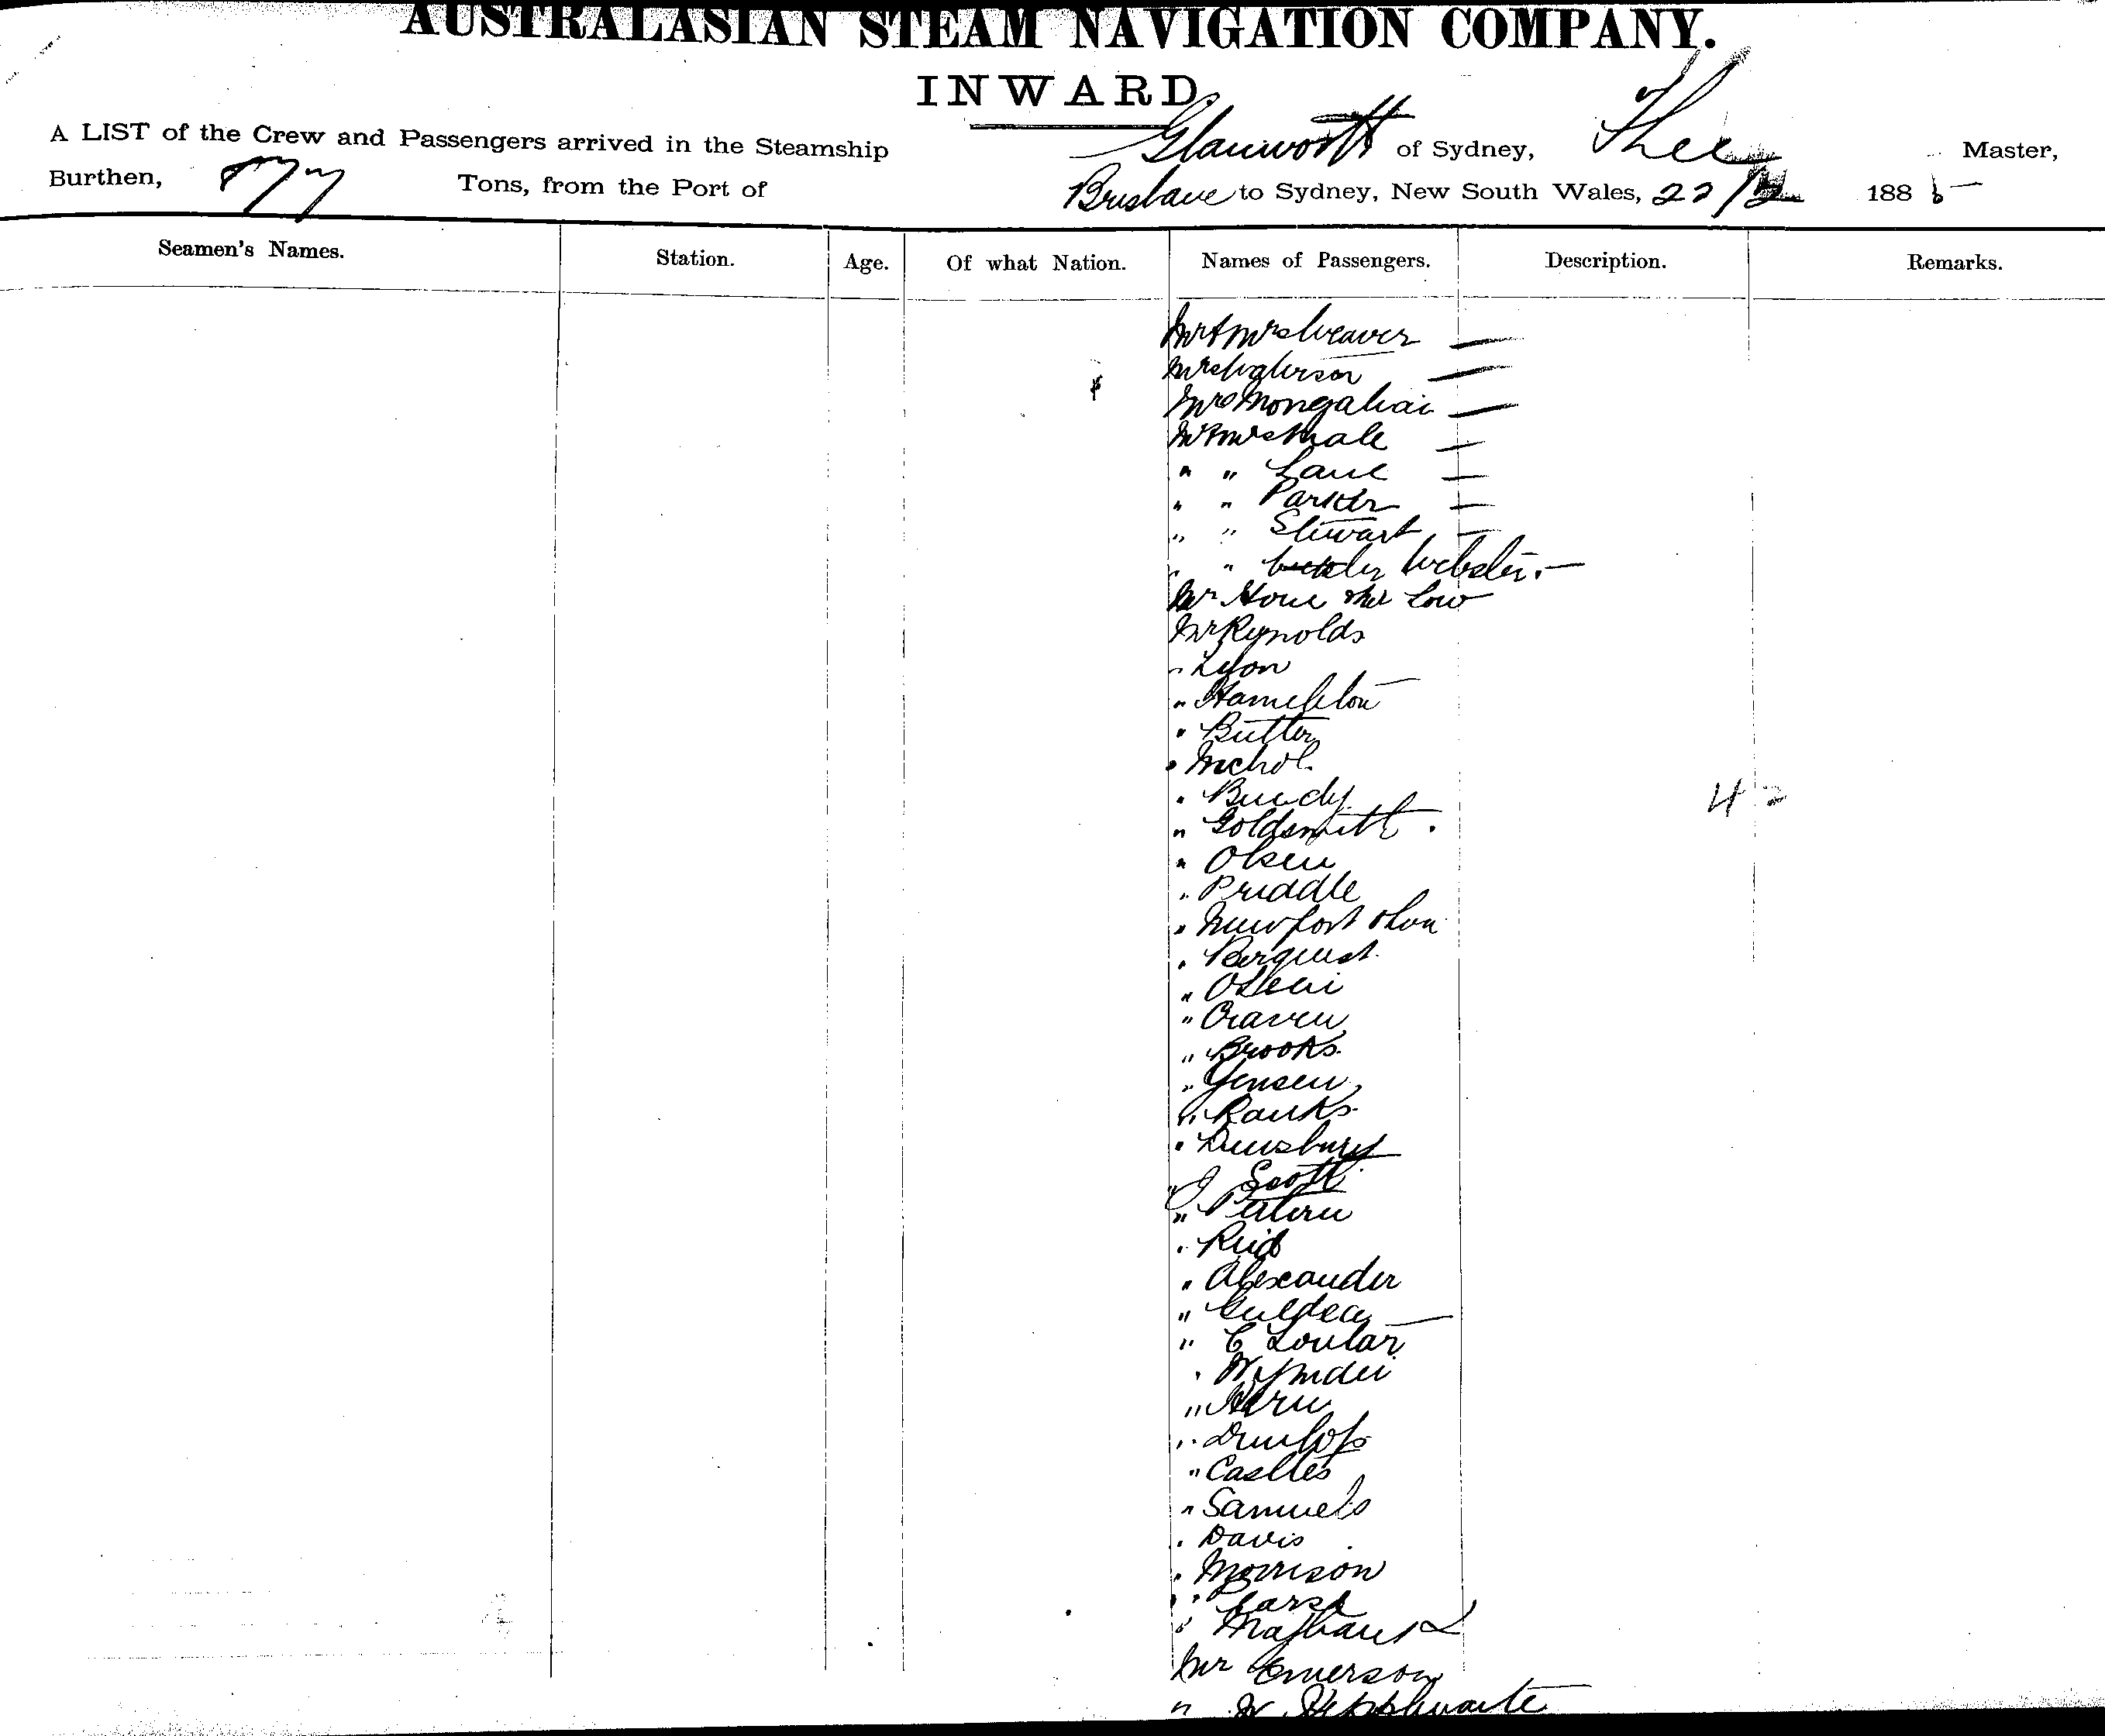 AUSTRALASIAN STEAM NAVIGATION COMPANY.
INWARD.
A LIST of the Crew and Passengers arrived in the Steamship Glanworth of Sydney, Master,
Burthen, 877 Tons, from the Port of Brisbane to Sydney, New South Wales, 22/2 188
Seamen's Names. Station. Age. Of what Nation. Names of Passengers. Description. Remarks.
Mr & Mrs Weaver —
Mrs —
Mrs —
Mr & Mrs Male —
" " Lane —
" " Parker —
" " Stewart —
" " Webster. —
Mr Low
Mr Reynolds
" Lyon
" Hamilton
" Butter
" Nichol.
" Bundy
42
" Goldsmith.
" Olsen
" Priddle
" Newport
" Berquist
"
" Craven
" Brooks.
" Jensen
" Banks
" Dewsbury
" J Scott
"
" Reid
" Alexander
"
" C
"
" Hern
" Dunlop
" Castles
" Samuels
" Davis
" Morrison
"
"
Mr Emerson
" W Hepplwaite